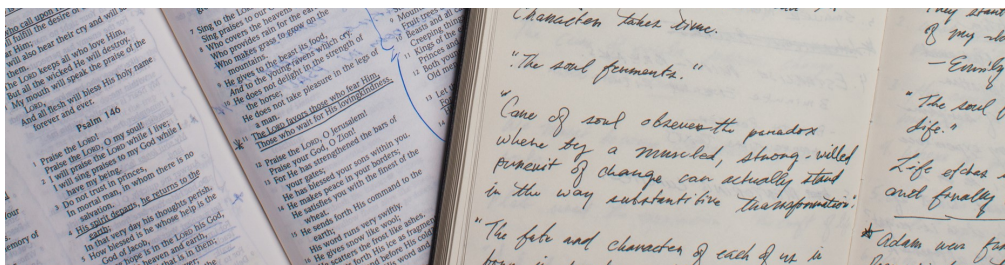 who call upon
fulfill the desire of
Him;
will also hear their cry and will
them.
The LORD keeps all who love Him,
But all the wicked He will destroy.
My mouth will speak the praise of the
LORD,
And all flesh will bless His holy name
forever and ever.
Psalm 146
1 Praise the LORD!
Praise the LORD, O my soul!
2 I will praise the LORD while I live;
I will sing praises to my God while I
have my being.
3 Do not trust in princes,
In mortal man, in whom there is no
salvation.
4 His spirit departs, he returns to the
earth;
In that very day his thoughts perish.
How blessed is he whose help is the
God of Jacob,
hope is in the LORD his God,
heaven and earth,
that is in them;
memory of
7 Sing to the LORD
Sing praises to our God
8 Who covers the heavens
Who provides rain for the earth
Who makes grass to grow on the
mountains.
9 He gives to the beast its food,
And to the young ravens which cry.
10 He does not delight in the strength of
the horse;
He does not take pleasure in the legs of
a man.
11 The LORD favors those who fear Him,
Those who wait for His lovingkindness.
12 Praise the LORD, O Jerusalem!
Praise your God, O Zion!
13 For He has strengthened the bars of
your gates;
He has blessed your sons within you.
14 He makes peace in your borders;
He satisfies you with the finest of the
wheat.
15 He sends forth His command to the
earth;
His word runs very swiftly.
16 He gives snow like wool;
He scatters the frost like ashes.
forth His ice as fragments
and before His cold
His word and
9 Mountains
Fruit trees
10 Beasts and all
Creeping things
11 Kings of the
Princes
12 Both young
Old men
13 Let
14
Character takes time.
"The soul ferments."
"Care of soul observes the paradox
where by a muscled, strong-willed
pursuit of change can actually stand
in the way substantitive transformation"
"The fate and character of each of us is
They stand
of my
— Emily
"The soul
life."
Life etches
and finally
* Adam were